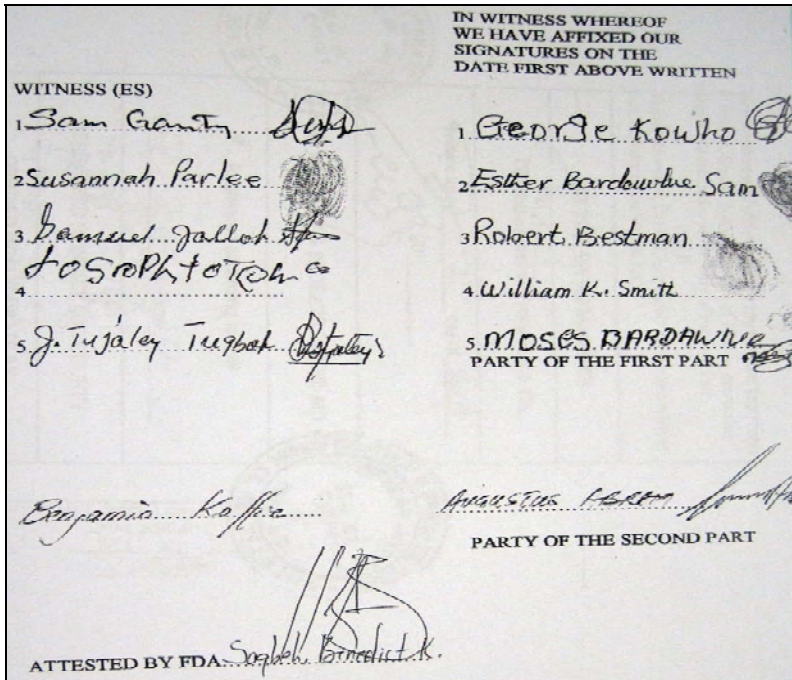 IN WITNESS WHEREOF
WE HAVE AFFIXED OUR
SIGNATURES ON THE
DATE FIRST ABOVE WRITTEN
WITNESS (ES)
1 Sam Ganty
2 Susannah Parlee
3 Samuel Jalloh
4
5 J. Tujaley Tugbah
1 George Kowho
2 Esther Sam
3 Robert Bestman
4 William K. Smith
5. MOSES BARDAWLUE
PARTY OF THE FIRST PART
Benjamin Koffie
AUGUSTUS ABRAM
PARTY OF THE SECOND PART
ATTESTED BY FDA Benedict K.